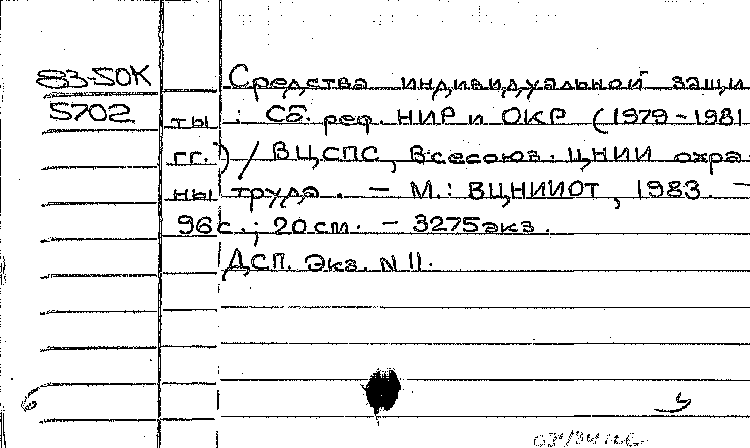 83-50К
5702
Средства индивидуальной защи
ты : Сб. реф. НИР и ОКР (1979-1981
гг.) / ВЦСПС, Всесоюз. ЦНИИ охра
ны труда. — М.: ВЦНИИОТ, 1983. —
96с.; 20см. — 3275экз.
ДСП. Экз. N 11.
б